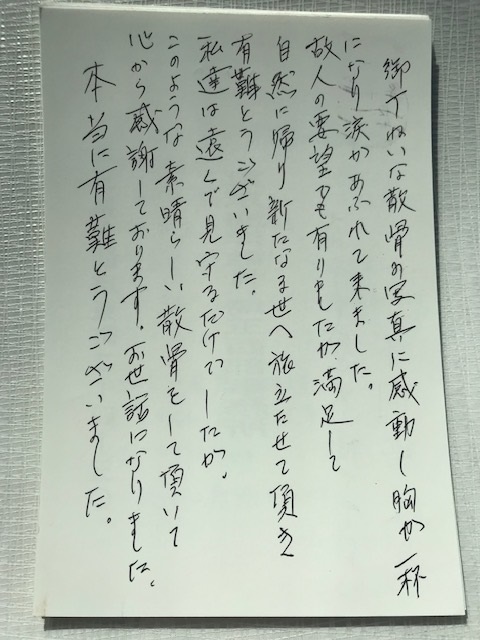 御丁ねいな散骨の写真に感動し胸が一杯
になり涙があふれて来ました。
故人の要望でも有りましたが満足して
自然に帰り新たなる世へ旅立たせて頂き
有難とうございました。
私達は遠くで見守るだけでしたが、
このような素晴らしい散骨をして頂いて
心から感謝しております。お世話になりました。
本当に有難とうございました。